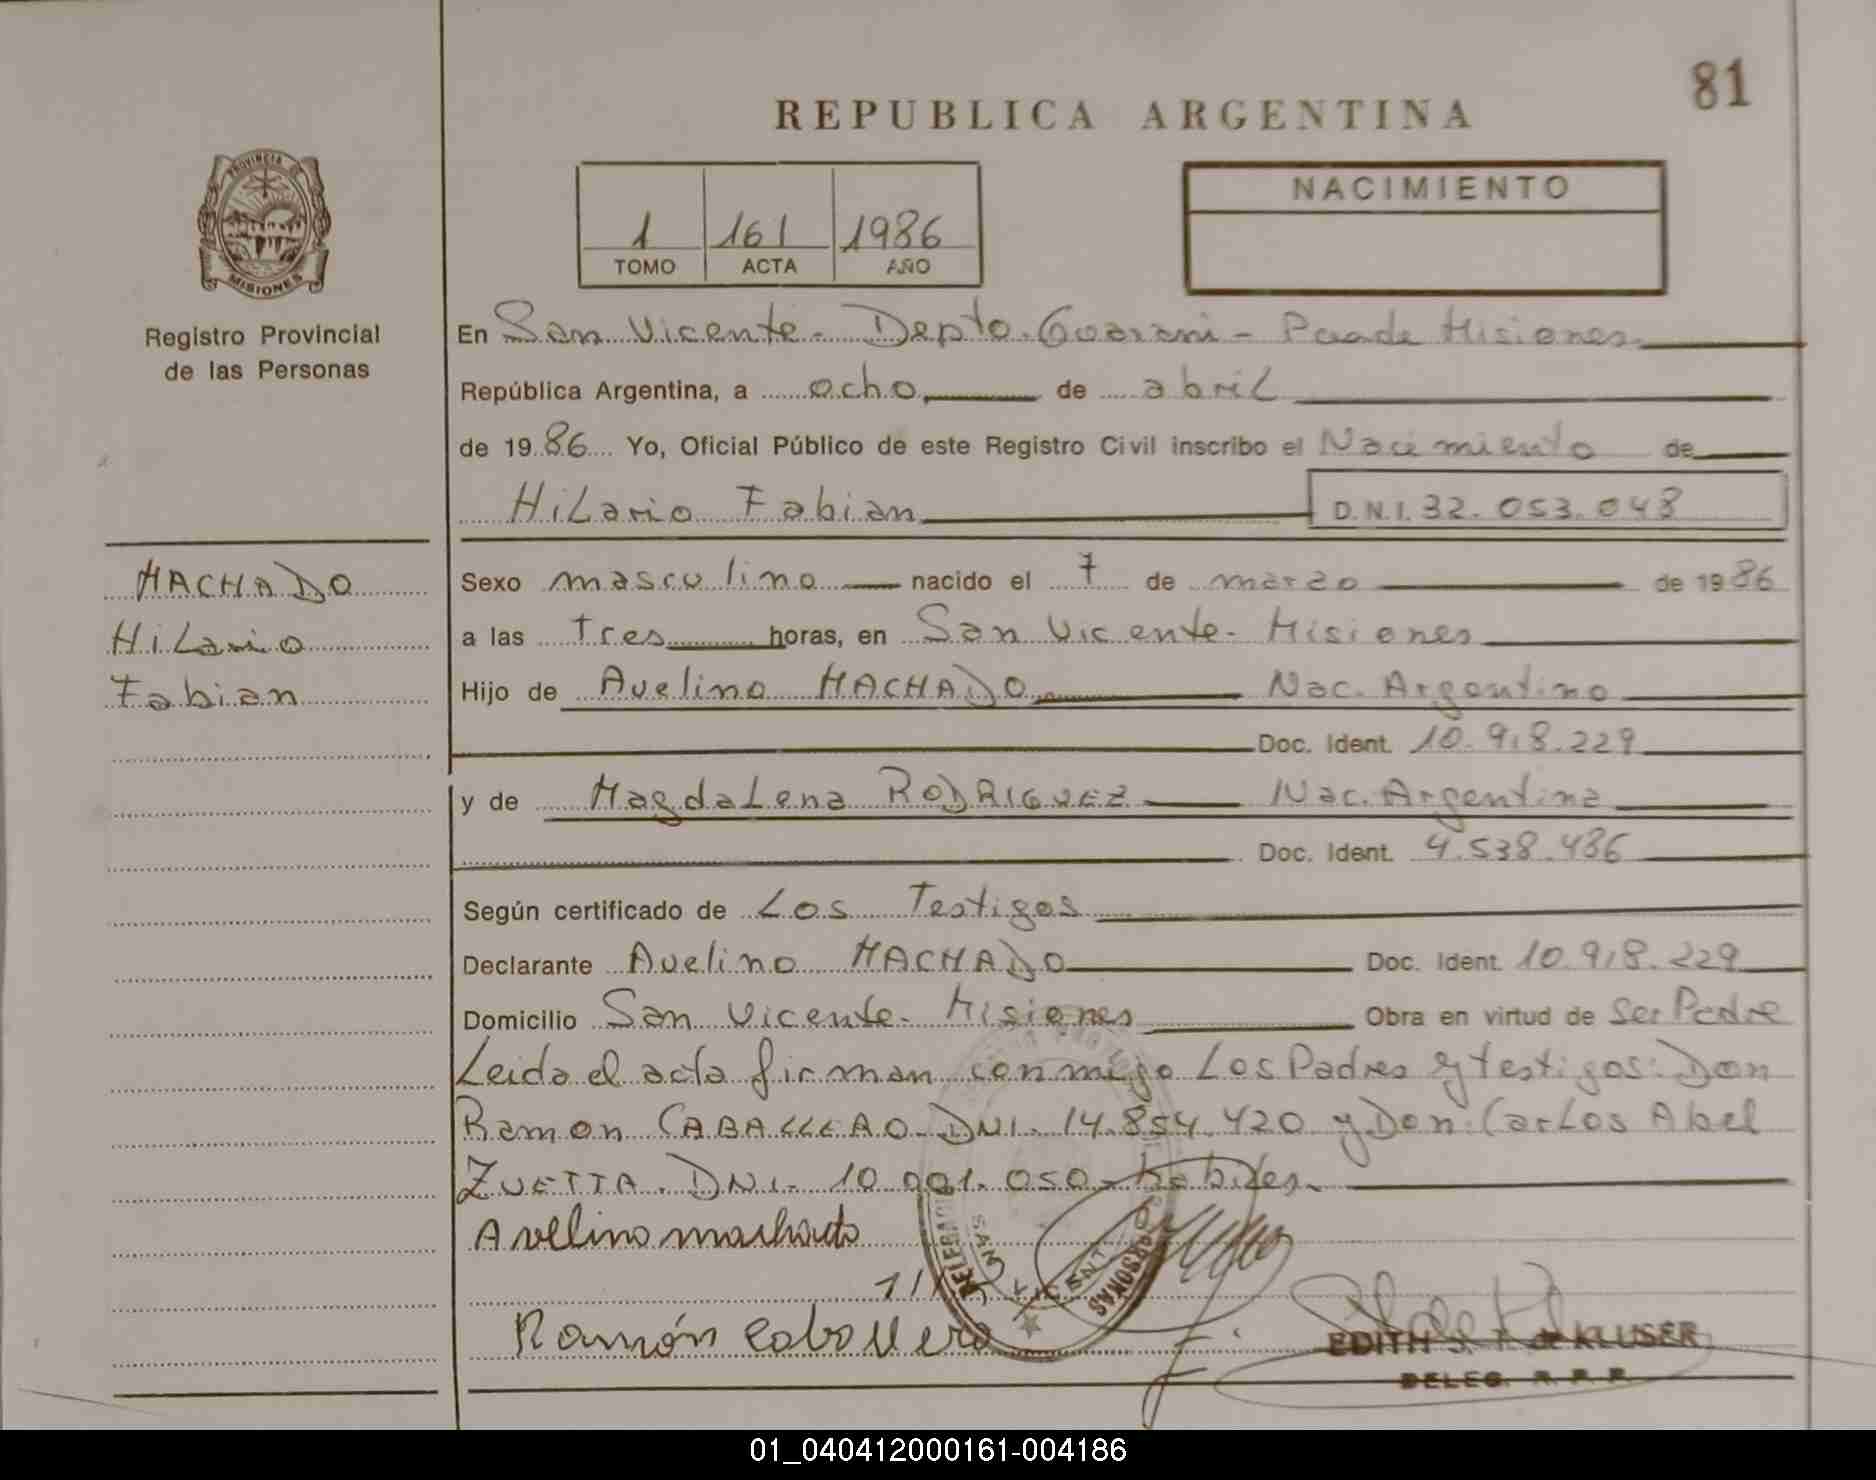 81
REPUBLICA ARGENTINA
PROVINCIA DE
MISIONES
1 161 1986
TOMO ACTA AÑO
NACIMIENTO
Registro Provincial
de las Personas
En San Vicente - Depto. Guarani - Pcia de Misiones
República Argentina, a ocho de abril
de 1986 Yo, Oficial Público de este Registro Civil inscribo el Nacimiento de
Hilario Fabian D.N.I. 32.053.048
MACHADO
Hilario
Fabian
Sexo masculino nacido el 7 de marzo de 1986
a las Tres horas, en San Vicente - Misiones
Hijo de Avelino MACHADO Nac. Argentino
Doc. Ident. 10.918.229
y de Magdalena RODRIGUEZ Nac. Argentina
Doc. Ident. 4.538.486
Según certificado de Los Testigos
Declarante Avelino MACHADO Doc. Ident. 10.918.229
Domicilio San Vicente - Misiones Obra en virtud de Ser Padre
Leida el acta firman conmigo Los Padres y testigos: Don
Ramon CABALLERO DNI. 14.854.420 y Don Carlos Abel
ZUETTA. DNI. 10.001.050 habiles.
Avelino machado
Ramón Caballero
SAN VICENTE
PERSONAS
EDITH S. T. de KLUSER
DELEG. R. P. P.
01_040412000161-004186